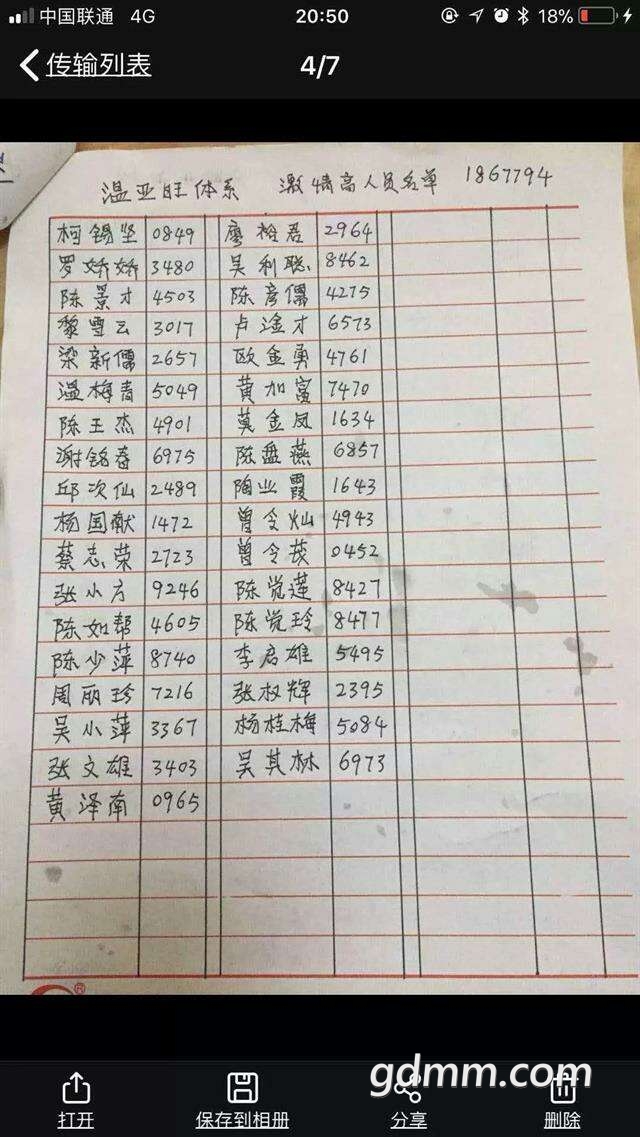 中国联通 4G 20:50 18%
传输列表 4/7
温亚旺体系 激情高人员名单 1867794
柯锡坚 0849 廖裕君 2964
罗娇娇 3480 吴利聪 8462
陈景才 4503 陈彦儒 4275
黎雪云 3017 卢淦才 6573
梁新儒 2657 欧金勇 4761
温梅青 5049 黄加富 7470
陈王杰 4901 莫金凤 1634
谢铭春 6975 陈盘燕 6857
邱次仙 2489 陶业霞 1643
杨国献 1472 曾令灿 4943
蔡志荣 2723 曾令茂 0452
张小方 9246 陈觉莲 8427
陈如帮 4605 陈觉玲 8477
陈少萍 8740 李启雄 5495
周丽珍 7216 张权辉 2395
吴小萍 3367 杨桂梅 5084
张文雄 3403 吴其林 6973
黄泽南 0965
gdmm.com
打开 保存到相册 分享 删除